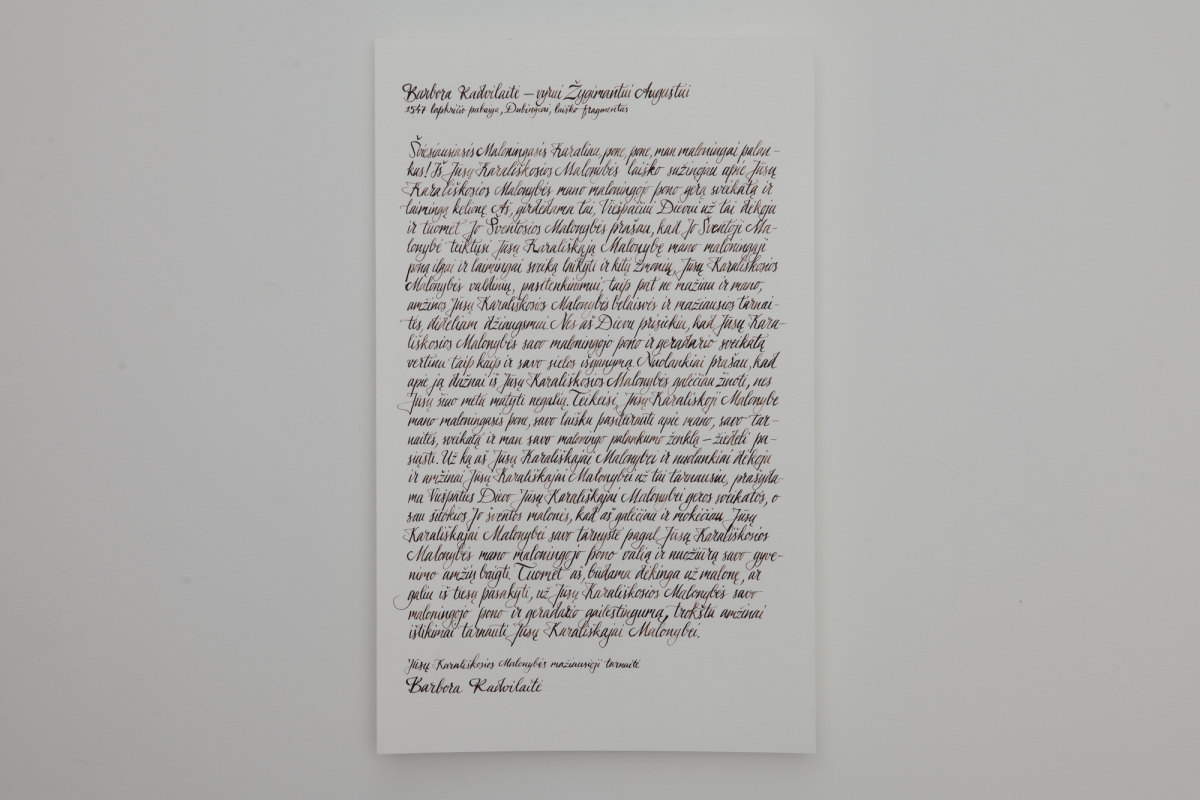 Barbora Radvilaitė – vyrui Žygimantui Augustui
1547 lapkričio pabaiga, Dubingiai, laiško fragmentas
Šviesiausiasis Maloningasis Karaliau, pone, pone, man maloningai palan-
kus! Iš Jūsų Karališkosios Malonybės laiško sužinojau apie Jūsų
Karališkosios Malonybės mano maloningojo pono gerą sveikatą ir
laimingą kelionę. Aš, girdėdama tai, Viešpačiui Dievui už tai dėkoju
ir tuomet Jo Šventosios Malonybės prašau, kad Jo Šventoji Ma-
lonybė teiktųsi Jūsų Karališkąją Malonybę mano maloningąjį
poną ilgai ir laimingai sveiką laikyti ir kitų žmonių, Jūsų Karališkosios
Malonybės valdinių, pasitenkinimui, taip pat ne mažiau ir mano,
amžinos Jūsų Karališkosios Malonybės belaisvės ir mažiausios tarnai-
tės, dideliam džiaugsmui. Nes aš Dievu prisiekiu, kad Jūsų Kara-
liškosios Malonybės savo maloningojo pono ir geradario sveikatą
vertinu taip kaip ir savo sielos išganymą. Nuolankiai prašau, kad
apie ją dažnai iš Jūsų Karališkosios Malonybės galėčiau žinoti, nes
Jūsų šiuo metu matyti negaliu. Teikeisi, Jūsų Karališkoji Malonybe
mano maloningasis pone, savo laišku pasiteirauti apie mano, savo tar-
naitės, sveikatą ir man savo maloningo palankumo ženklą – žiedelį pa-
siųsti. Už ką aš Jūsų Karališkajai Malonybei ir nuolankiai dėkoju
ir amžinai Jūsų Karališkajai Malonybei už tai tarnausiu, prašyda-
ma Viešpaties Dievo Jūsų Karališkajai Malonybei geros sveikatos, o
sau šitokios Jo šventos malonės, kad aš galėčiau ir mokėčiau Jūsų
Karališkajai Malonybei savo tarnystę pagal Jūsų Karališkosios
Malonybės mano maloningojo pono valią ir nuožiūrą savo gyve-
nimo amžių baigti. Tuomet aš, būdama dėkinga už malonę, ar
galiu iš tiesų pasakyti, už Jūsų Karališkosios Malonybės savo
maloningojo pono ir geradario gailestingumą, trokštu amžinai
ištikimai tarnauti Jūsų Karališkajai Malonybei.
Jūsų Karališkosios Malonybės mažiausioji tarnaitė
Barbora Radvilaitė